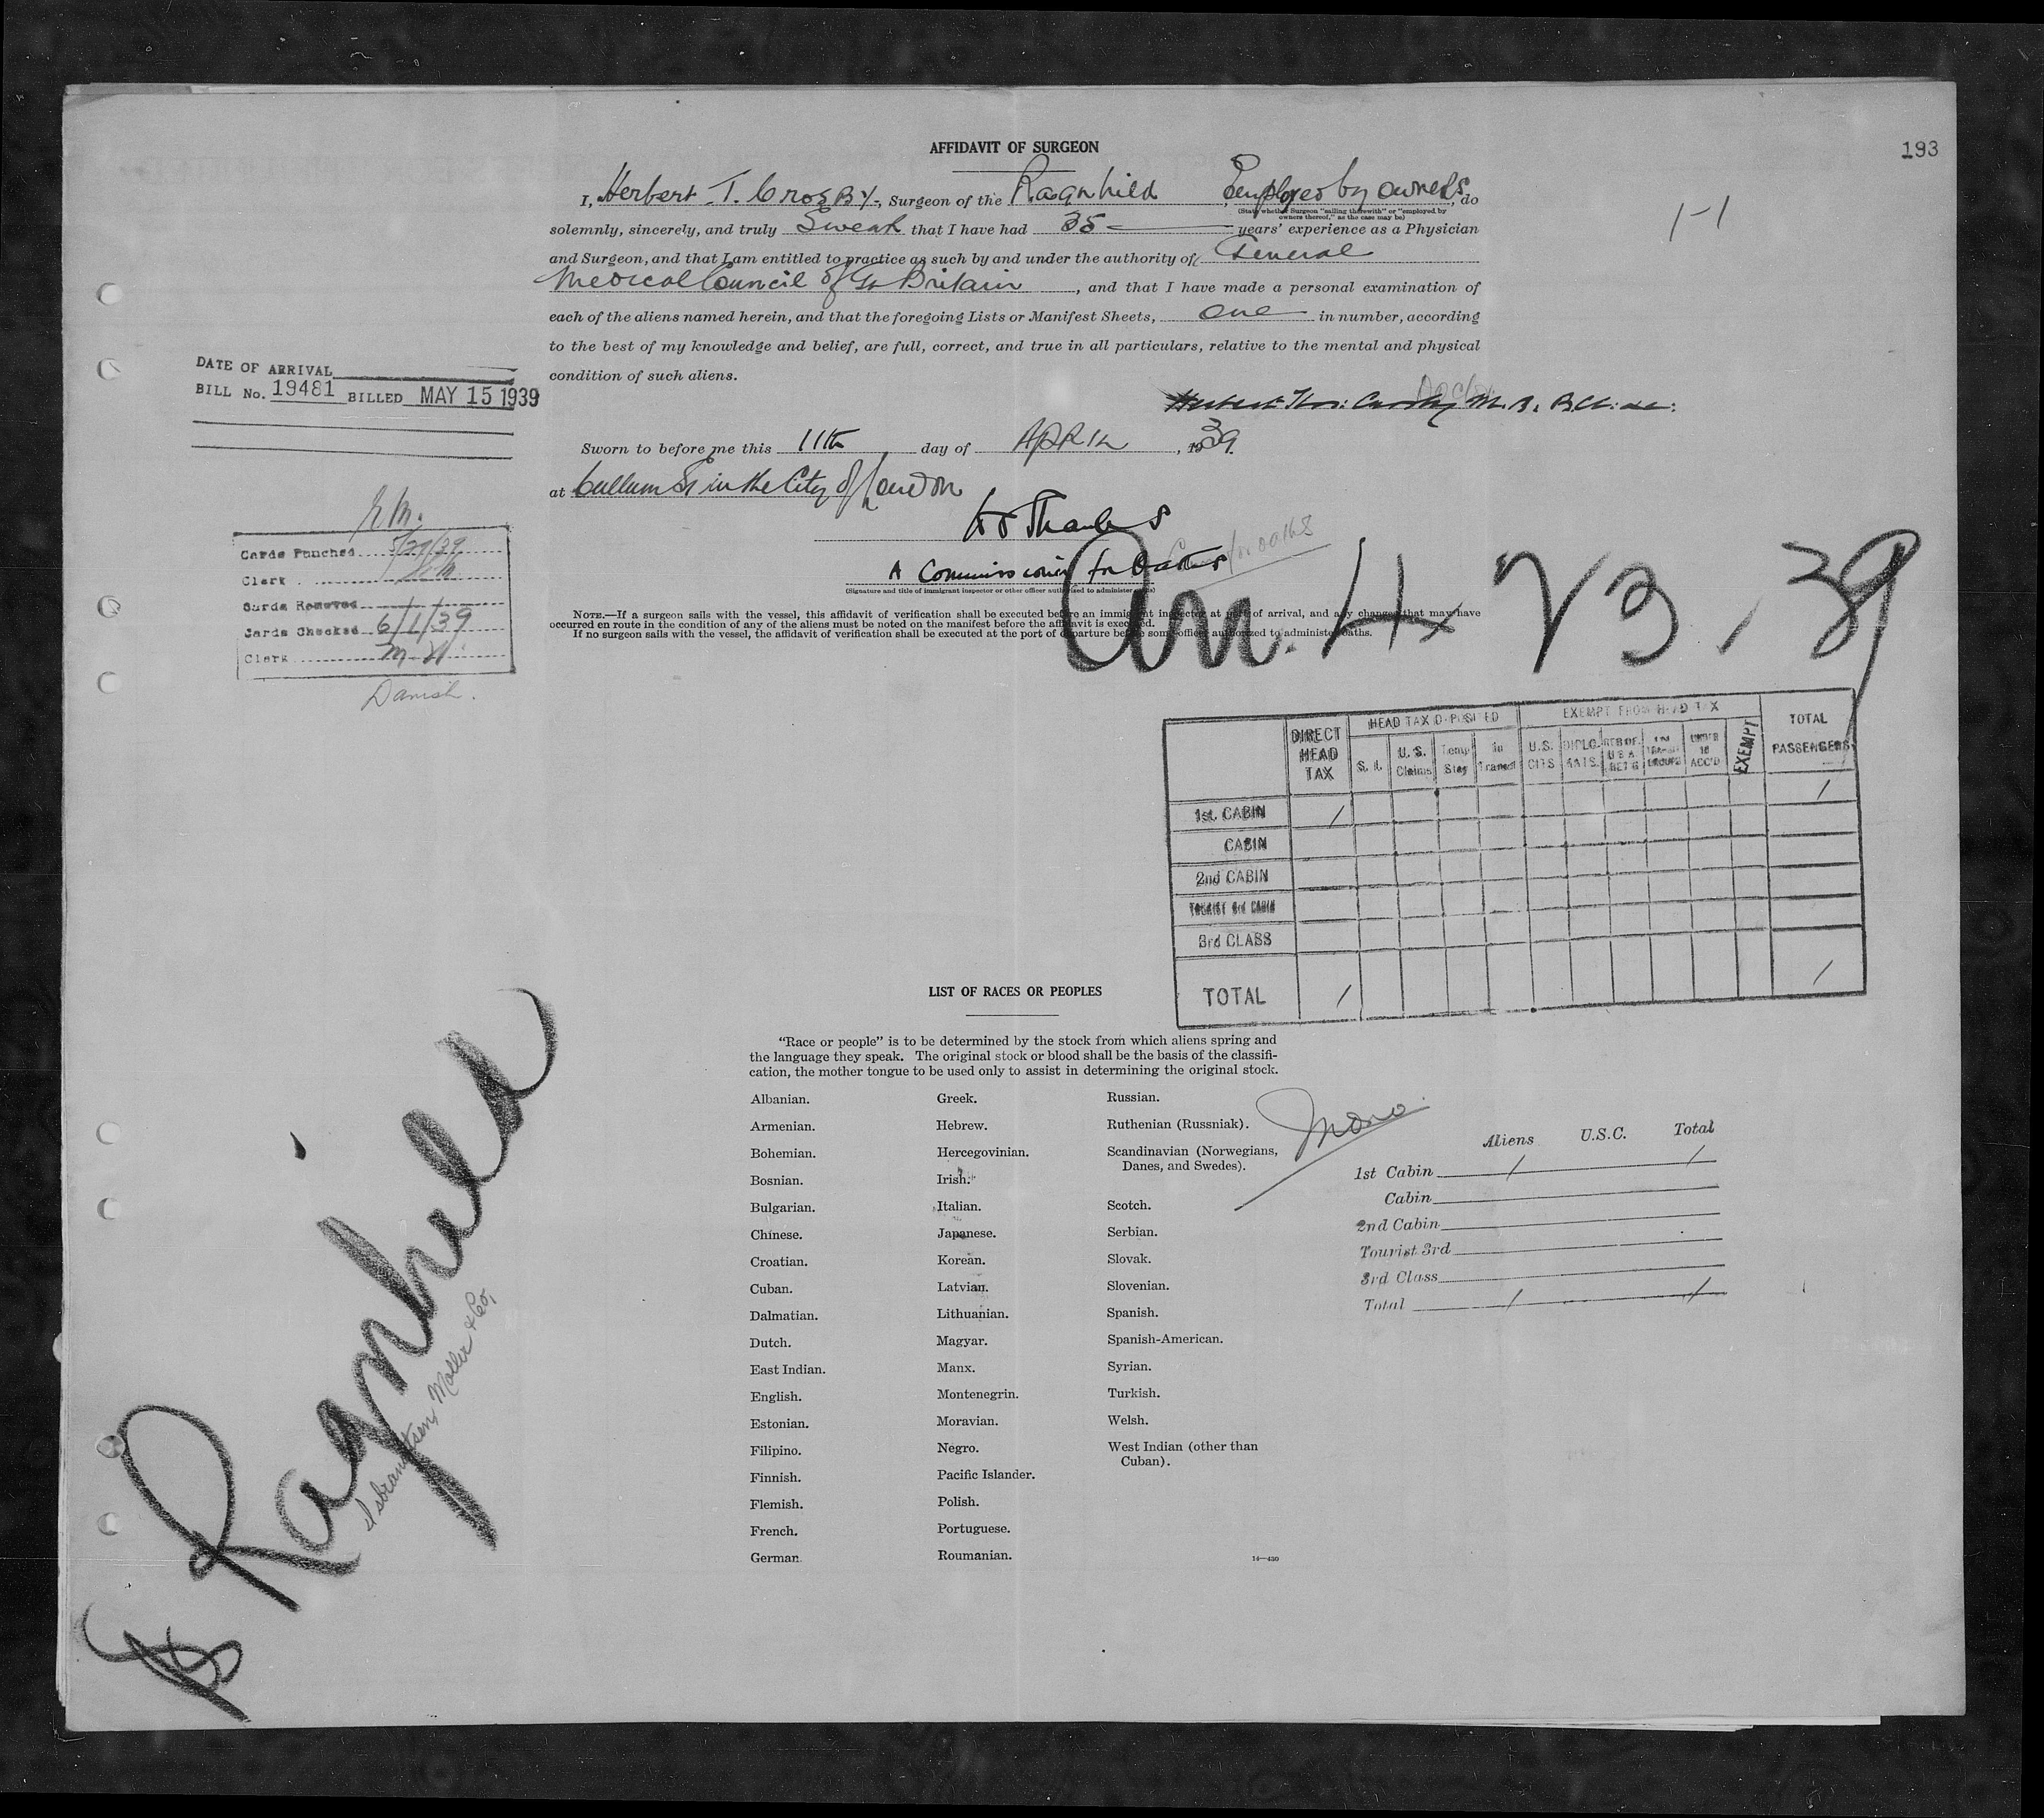 193
AFFIDAVIT OF SURGEON
I, Herbert T. Crosby, Surgeon of the Ragnhild Employed by owners, do
(State whether Surgeon "sailing therewith" or "employed by
owners thereof," as the case may be)
1-1
solemnly, sincerely, and truly Swear that I have had 35 years' experience as a Physician
and Surgeon, and that I am entitled to practice as such by and under the authority of General
Medical Council of Gt Britain, and that I have made a personal examination of
each of the aliens named herein, and that the foregoing Lists or Manifest Sheets, one in number, according
to the best of my knowledge and belief, are full, correct, and true in all particulars, relative to the mental and physical
condition of such aliens.
Doctor
Herbert Thos: Crosby M.B., B.Ch:
DATE OF ARRIVAL
BILL No. 19481 BILLED MAY 15 1939
Sworn to before me this 11th day of APRIL, 1939.
at Cullum St in the City of London
A Commissioner for Oaths
for oaths
(Signature and title of immigrant inspector or other officer authorized to administer oaths)
NOTE.—If a surgeon sails with the vessel, this affidavit of verification shall be executed before an immigrant inspector at port of arrival, and any changes that may have
occurred en route in the condition of any of the aliens must be noted on the manifest before the affidavit is executed.
If no surgeon sails with the vessel, the affidavit of verification shall be executed at the port of departure before some officer authorized to administer oaths.
Cards Punched 5/29/39
Clerk
Cards Removed
Cards Checked 6/1/39
Clerk M. W.
Danish.
Arr. 4 23, 39
DIRECT HEAD TAX
HEAD TAX DEPOSITED
EXEMPT FROM HEAD TAX
TOTAL PASSENGERS
S. I. U. S. Claims Temp Stay In Transit U.S. CITS DIPLOMATS. RES OF U S A RET'G UNDER 16 ACC'D EXEMPT
1st. CABIN / 1
CABIN
2nd CABIN
TOURIST 3rd CABIN
3rd CLASS
TOTAL / 1
LIST OF RACES OR PEOPLES
"Race or people" is to be determined by the stock from which aliens spring and
the language they speak. The original stock or blood shall be the basis of the classifi-
cation, the mother tongue to be used only to assist in determining the original stock.
Albanian.
Armenian.
Bohemian.
Bosnian.
Bulgarian.
Chinese.
Croatian.
Cuban.
Dalmatian.
Dutch.
East Indian.
English.
Estonian.
Filipino.
Finnish.
Flemish.
French.
German.
Greek.
Hebrew.
Hercegovinian.
Irish.
Italian.
Japanese.
Korean.
Latvian.
Lithuanian.
Magyar.
Manx.
Montenegrin.
Moravian.
Negro.
Pacific Islander.
Polish.
Portuguese.
Roumanian.
Russian.
Ruthenian (Russniak).
Scandinavian (Norwegians,
Danes, and Swedes).
Scotch.
Serbian.
Slovak.
Slovenian.
Spanish.
Spanish-American.
Syrian.
Turkish.
Welsh.
West Indian (other than
Cuban).
14—430
Aliens U.S.C. Total
1st Cabin / /
Cabin
2nd Cabin
Tourist 3rd
3rd Class
Total / /
SS Ragnhild
Isbrandtsen, Moller & Co,